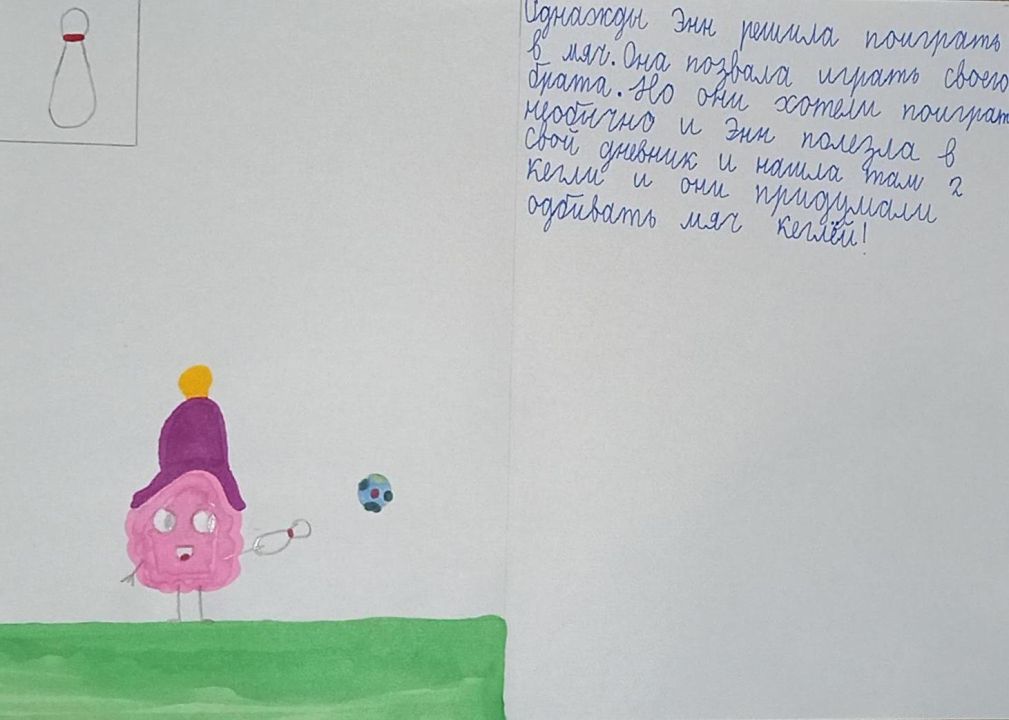 Однажды Энн решила поиграть
в мяч. Она позвала играть своего
брата. Но они хотели поиграт
необычно и Энн полезла в
свой дневник и нашла там 2
кегли и они придумали
одбивать мяч кеглёй!